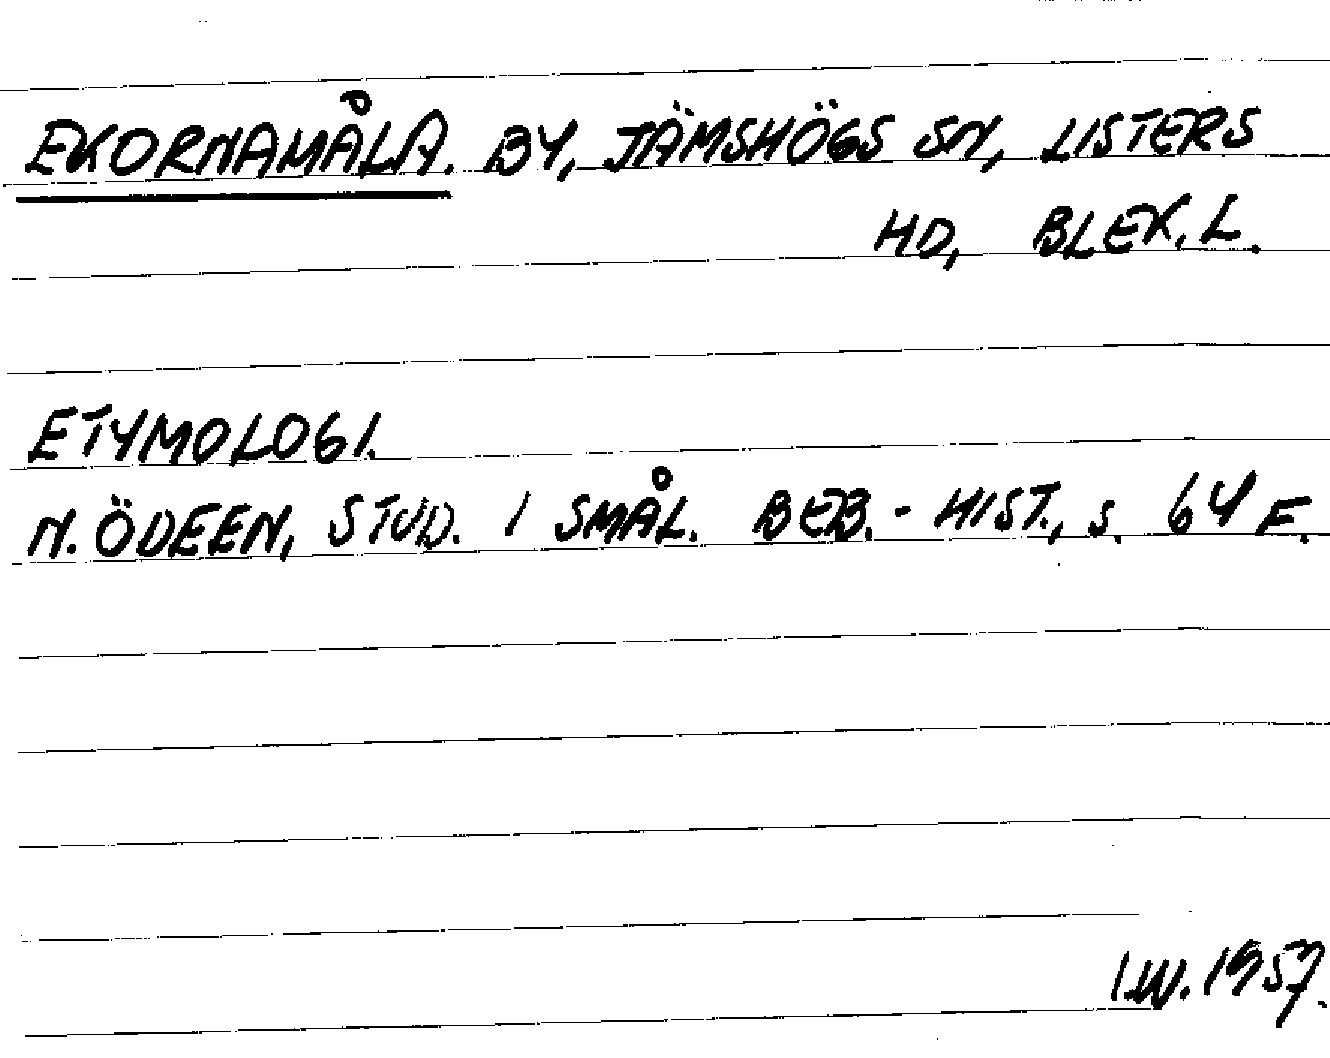 EKORNAMÅLA. BY, JÄMSHÖGS SN, LISTERS
HD, BLEK. L.
ETYMOLOGI.
N. ÖDEEN, STUD. I SMÅL. BEB.-HIST., S. 64 F.
I.W. 1957.